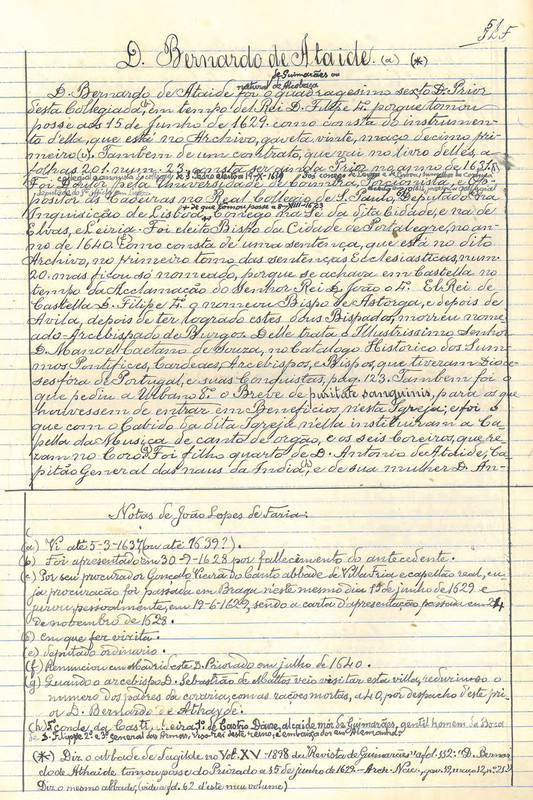 51 F
D. Bernardo de Ataide. (a) (*)
de Guimarães ou
natural de Alcobaça
D. Bernardo de Ataide foi o quadragesimo sexto D. Prior
desta Collegiada, (b) em tempo del Rei D. Filipe 4º, porque tomou
posse aos 15 de Junho de 1629. como consta do instrumen-
to d'ella, que está no Archivo, gaveta vinte, maço decimo pri-
meiro (c). Tambem de um contrato, que vai no livro delles, a
folhas 201. num. 23, consta ser ainda Prior no anno de 1635.
Foi Doutor pela Universidade de Coimbra,
positor ás Cadeiras no Real Collegio de S. Paulo, Deputado na
Inquisição de Lisboa, Conego na Sé da dita Cidade, e na de
de que tomou posse a 8-VIII-1623
Elvas, e Leiria. Foi eleito Bispo da Cidade de Portalegre, no an-
no de 1640. Como consta de uma sentença, que está no dito
Archivo, no primeiro tomo das sentenças Ecclesiasticas, num.
20. mas ficou só nomeado, porque se achava em Castella no
tempo da Acclamação do Senhor Rei D. João o 4º. El Rei de
Castella D. Filipe 4º o nomeou Bispo de Astorga, e depois de
Avila, depois de ter logrado estes dous Bispados, morreu nome
ado Archebispado de Burgos. Delle trata o Illustrissimo Senhor
D. Manoel Caetano de Souza, no Catalogo Historico dos Sum
mos Pontifices, Cardeaes, Arcebispos, e Bispos, que tiveram Dioce
ses fóra de Portugal, e suas Conquistas, pag. 123. Tambem foi o
que pediu a Urbano 8º o Breve de puritate sanguinis, para os que
houvessem de entrar em Beneficios, nesta Igreja; e foi o
que com o Cabido da dita Igreja nella instituiram a Ca-
pella da Musica de canto de orgão, e os seis Coreiros, que re-
zam no Coro. Foi filho quarto de D. Antonio de Ataide, Ca-
pitão General das naus da India, (h) e de sua mulher D. An-
Notas de João Lopes de Faria:
(a) Vi até 5-3-1637 (ou até 1639?).
(b) Foi apresentado em 30-9-1628 por fallecimento do antecedente.
(c) Por seu procurador Gonçalo Vieira do Canto abbade de Villa Fria e capellão real, cu-
ja procuração foi passada em Braga neste mesmo dia 1º de junho de 1629 e
jurou pessoalmente, em 19-6-1629, sendo a carta d'apresentação passada em 24
de novembro de 1628.
(d) em que fez visita.
(e) deputado ordinario.
(f) Renunciou em Madrid este D. Priorado em julho de 1640.
(g) Quando o arcebispo D. Sebastião de Mattos veio visitar esta villa, reduziu-se o
numero dos padres da coraria, com as rações mortas, a 40, por despacho d'este pri-
or D. Bernardo de Athayde.
(h) 5º conde da Castanheira, 1º de Castro Daire, alcaide mór de Guimarães, gentil homem da Boca
de D. Filippe 2º e 3º, general das Armas, viso-rei deste reino, e embaixador em Alemanha.
(*) Diz o abbade de Tagilde no Vol. XV - 1898 da Revista de Guimarães a fl. 112: "D. Bernar
do de Athaide tomou posse do Priorado a 15 de junho de 1629.
Diz o mesmo abbade, (vide a fl. 62 d'este meu volume)